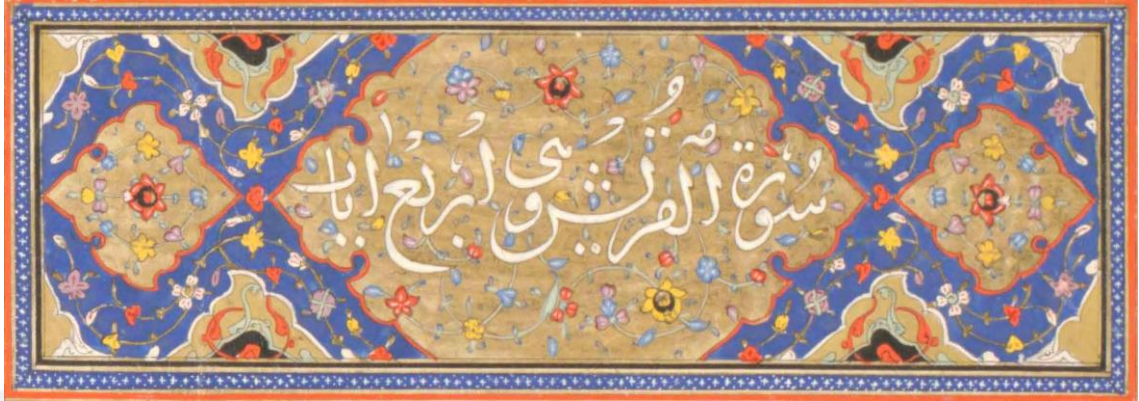 سورة القريش وهى اربع ايات